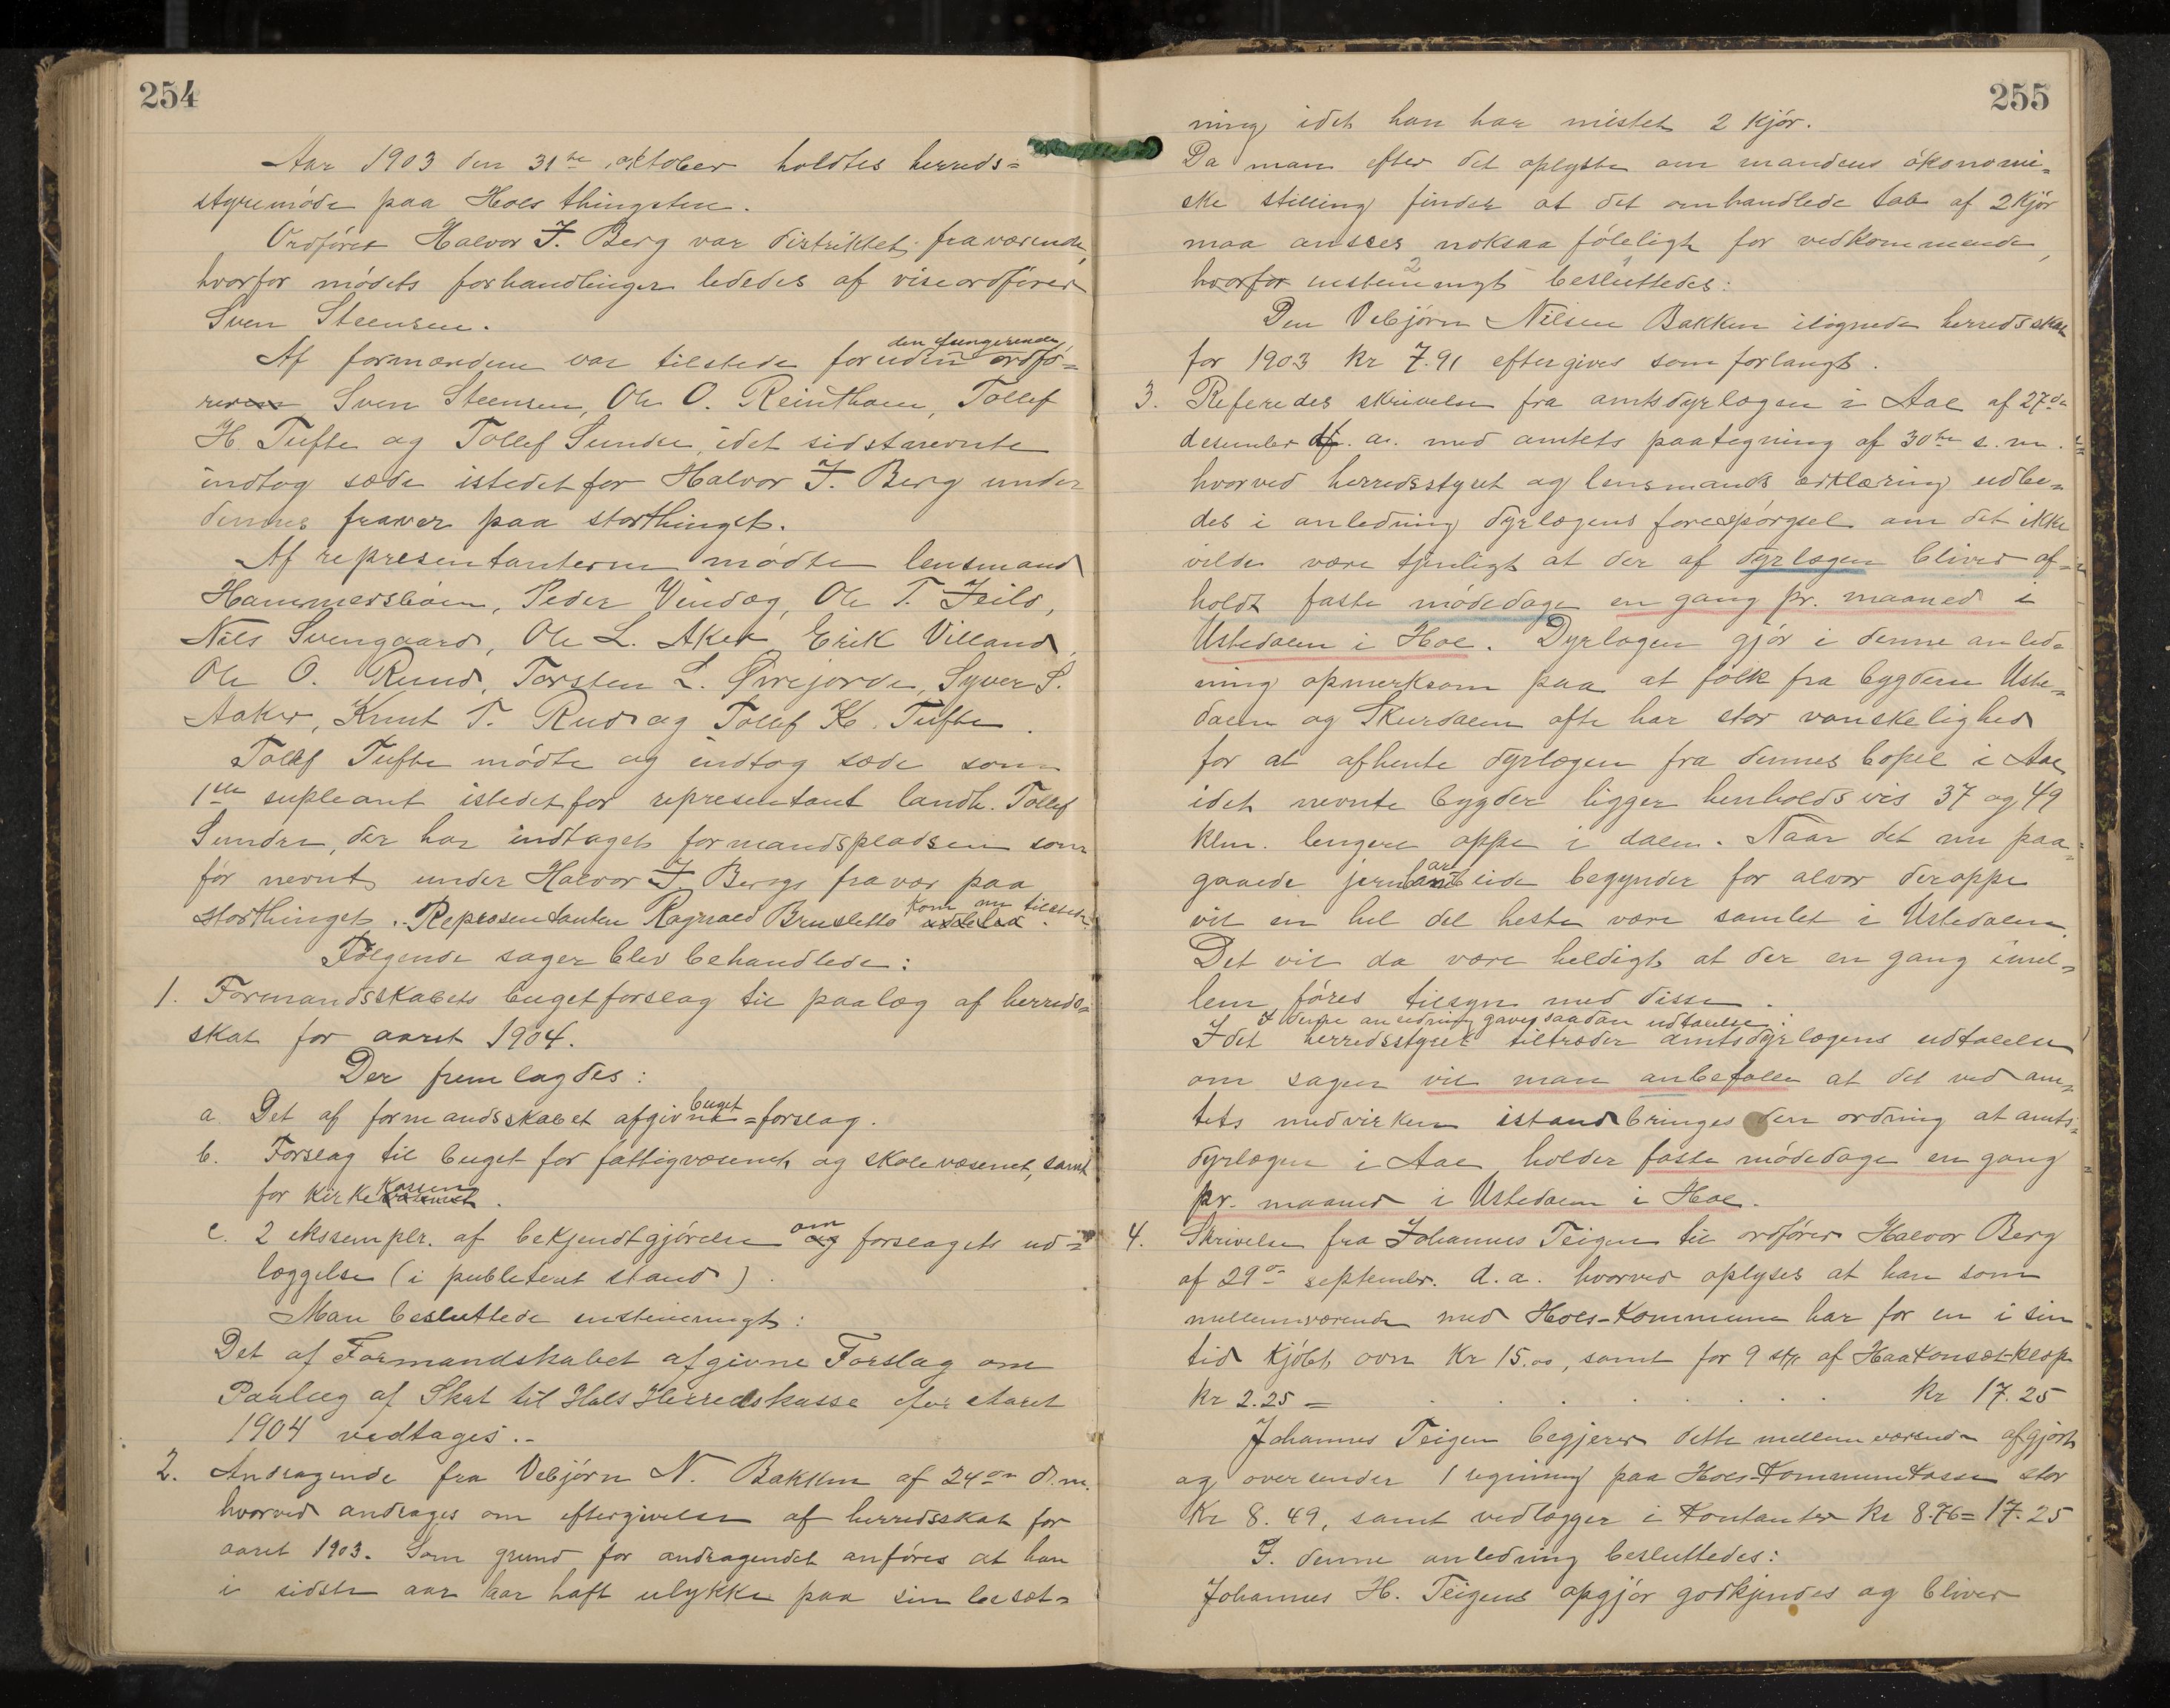 254
Aar 1903 den 31te oktober holdtes herreds=
styremøde paa Hols thingstue.
Ordfører Halvor T. Berg var distriktet fraværende,
hvorfor mødets forhandlinger lededes af viseordfører
Sven Steensen.
den fungerende
Af formændene var tilstede foruden ordfø=
reren Sven Steensen, Ole O. Reinthon, Tollef
H. Tufte og Tollef Sundre, idet sidstnevnte
indtog sæde istedetfor Halvor T. Berg under
dennes fravær paa storthinget.
Af representanterne mødte lensmand
Hammersbøen, Peder Vindeg, Ole T.
Nils Svengaard, Ole L. Aker, Erik Villand,
Ole O. Rud, Torsten L. Øvrejorde, Syver S.
Aaker, Knut T. Rud og Tollef K. Tufte.
Tollef Tufte mødte og indtog sæde som
1ste supleant istedetfor representant landh. Tollef
Sundre, der har indtaget formandspladsen som
før nevnt, under Halvor T. Bergs fravær paa
kom nu tilstede
storthinget. Representanten Ragnvald Brusletto.
Følgende sager blev behandlede:
1. Formandsskabets bugetforslag til paalæg af herreds=
skat for aaret 1904.
Der fremlagdes:
buget
a. Det af formandsskabet afgivne = forslag.
b. Forslag til buget for fattigvæsenet, og skolevæsenet, samt
kassen
for kirkevæsenet.
om
c. 2 eksemplr. af bekjendtgjørelse og forslagets ud=
læggelse (i publiceret stand).
Man besluttede enstemmigt:
Det af Formandskabet afgivne Forslag om
Paalæg af Skat til Hols Herredskasse for Aaret
1904 vedtages.-
2. Andragende fra Vebjørn N. Bakken af 24de d.m.
hvorved andrages om eftergivelse af herredsskat for
aaret 1903. Som grund for andragendet anføres at han
i sidste aar har haft ulykke paa sin besæt=
255
ning, idet han har mistet 2 kjør.
Da man efter det oplyste om mandens økonomi=
ske stilling finder at det omhandlede tab af 2 kjør
maa ansees noksaa føleligt for vedkommende,
2 1
hvorfor enstemmigt besluttedes:
Den Vebjørn Nilsen Bakken ilignede herredsskat
for 1903 kr 7.91 eftergives som forlangt.
3. Referedes skrivelse fra amtsdyrlægen i Aal af 27de
desember f. a. med amtets paategning af 30te s.m.
hvorved herredsstyret og lensmands erklæring udbe=
des i anledning dyrlægens forespørgsel om det ikke
vilde være tjenligt at der af dyrlægen bliver af=
holdt faste mødedage en gang pr. maaned i
Ustedalen i Hol. Dyrlægen gjør i denne anled=
ning opmerksom paa at folk fra bygdene Uste=
dalen og Skurdalen ofte har stor vanskelighed
for at afhente dyrlægen fra dennes bopel i Aal
idet nevnte bygder ligger henholdsvis 37 og 49
klm. lengere oppe i dalen. Naar det nu paa=
ar
gaaede jernbanearbeide begynder for alvor deroppe
vil en hel del heste være samlet i Ustedalen.
Det vil da være heldigt at der en gang imel=
lem føres tilsyn med disse.
I denne anledning gaves saadan udtalelse:
Idet herredsstyret tiltræder amtsdyrlægens udtalelse
om sagen vil man anbefale at det ved am=
tets medvirken istandbringes den ordning at amts=
dyrlægen i Aal holder faste mødedage en gang
pr. maaned i Ustedalen i Hol.
4. Skrivelse fra Johannes Teigen til ordfører Halvor Berg
af 29de septembr. d.a. hvorved oplyses at han som
mellemværende med Hols-kommune har for en i sin
tid kjøbt ovn Kr 15.00, samt for 9 stk. af Haakonsæt-klop
kr 2.25 = . . . . . . . kr 17.25
Johannes Teigen begjærer dette mellemværende afgjort
og oversender 1 regning paa Hols-kommunekasse stor
Kr 8.49, samt vedlægger i kontanter kr 8.76 = 17.25
I denne anledning besluttedes:
Johannes H. Teigens opgjør godkjendes og bliver